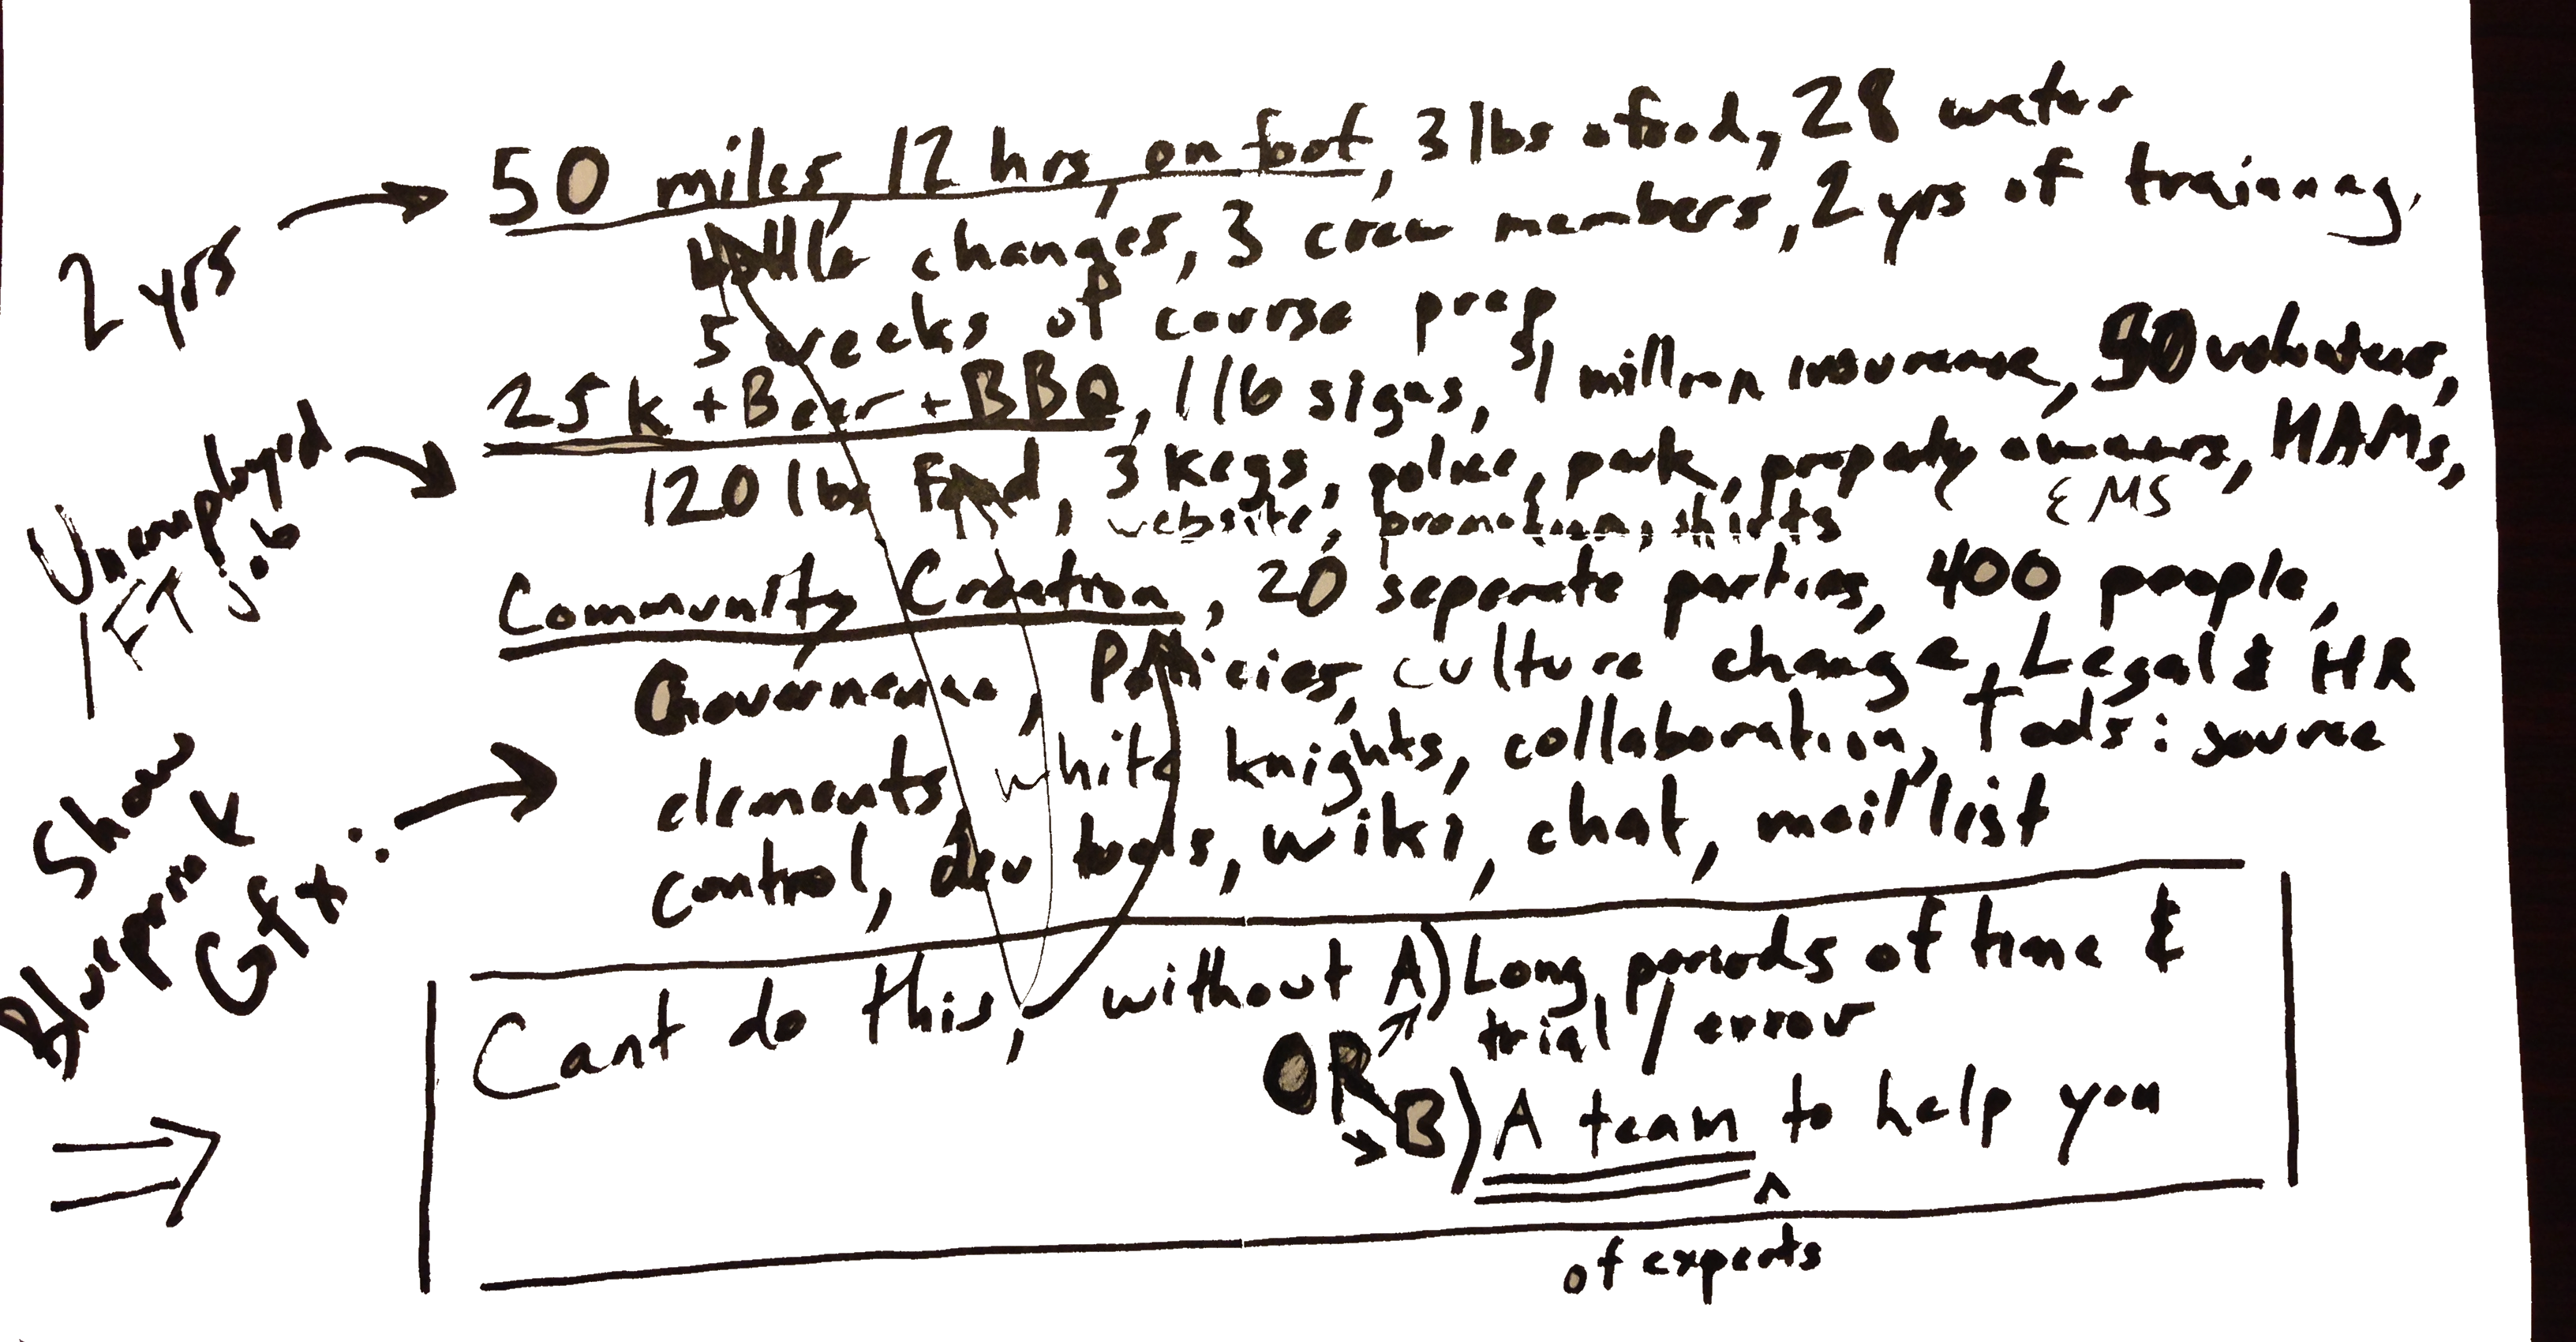 50 miles, 12 hrs, on foot, 3 lbs of food, 28 water
bottle changes, 3 crew members, 2 yrs of training,
5 weeks of course prep
25k + Beer + BBQ, 116 signs, $1 million insurance, 90 volunteers,
120 lbs Food, 3 kegs, police, park, property owners, HAMs,
website, promotion, shirts EMS
Community Creation, 20 separate parties, 400 people,
Governance, Policies, culture change, Legal & HR
elements, white knights, collaboration, Tools: source
control, dev tools, wiki, chat, mail list
Cant do this, without A) Long periods of time &
trial / error
OR
B) A team to help you
^
of experts
2 yrs
Unemployed
FT job
Show
Blueprint
Gfx: